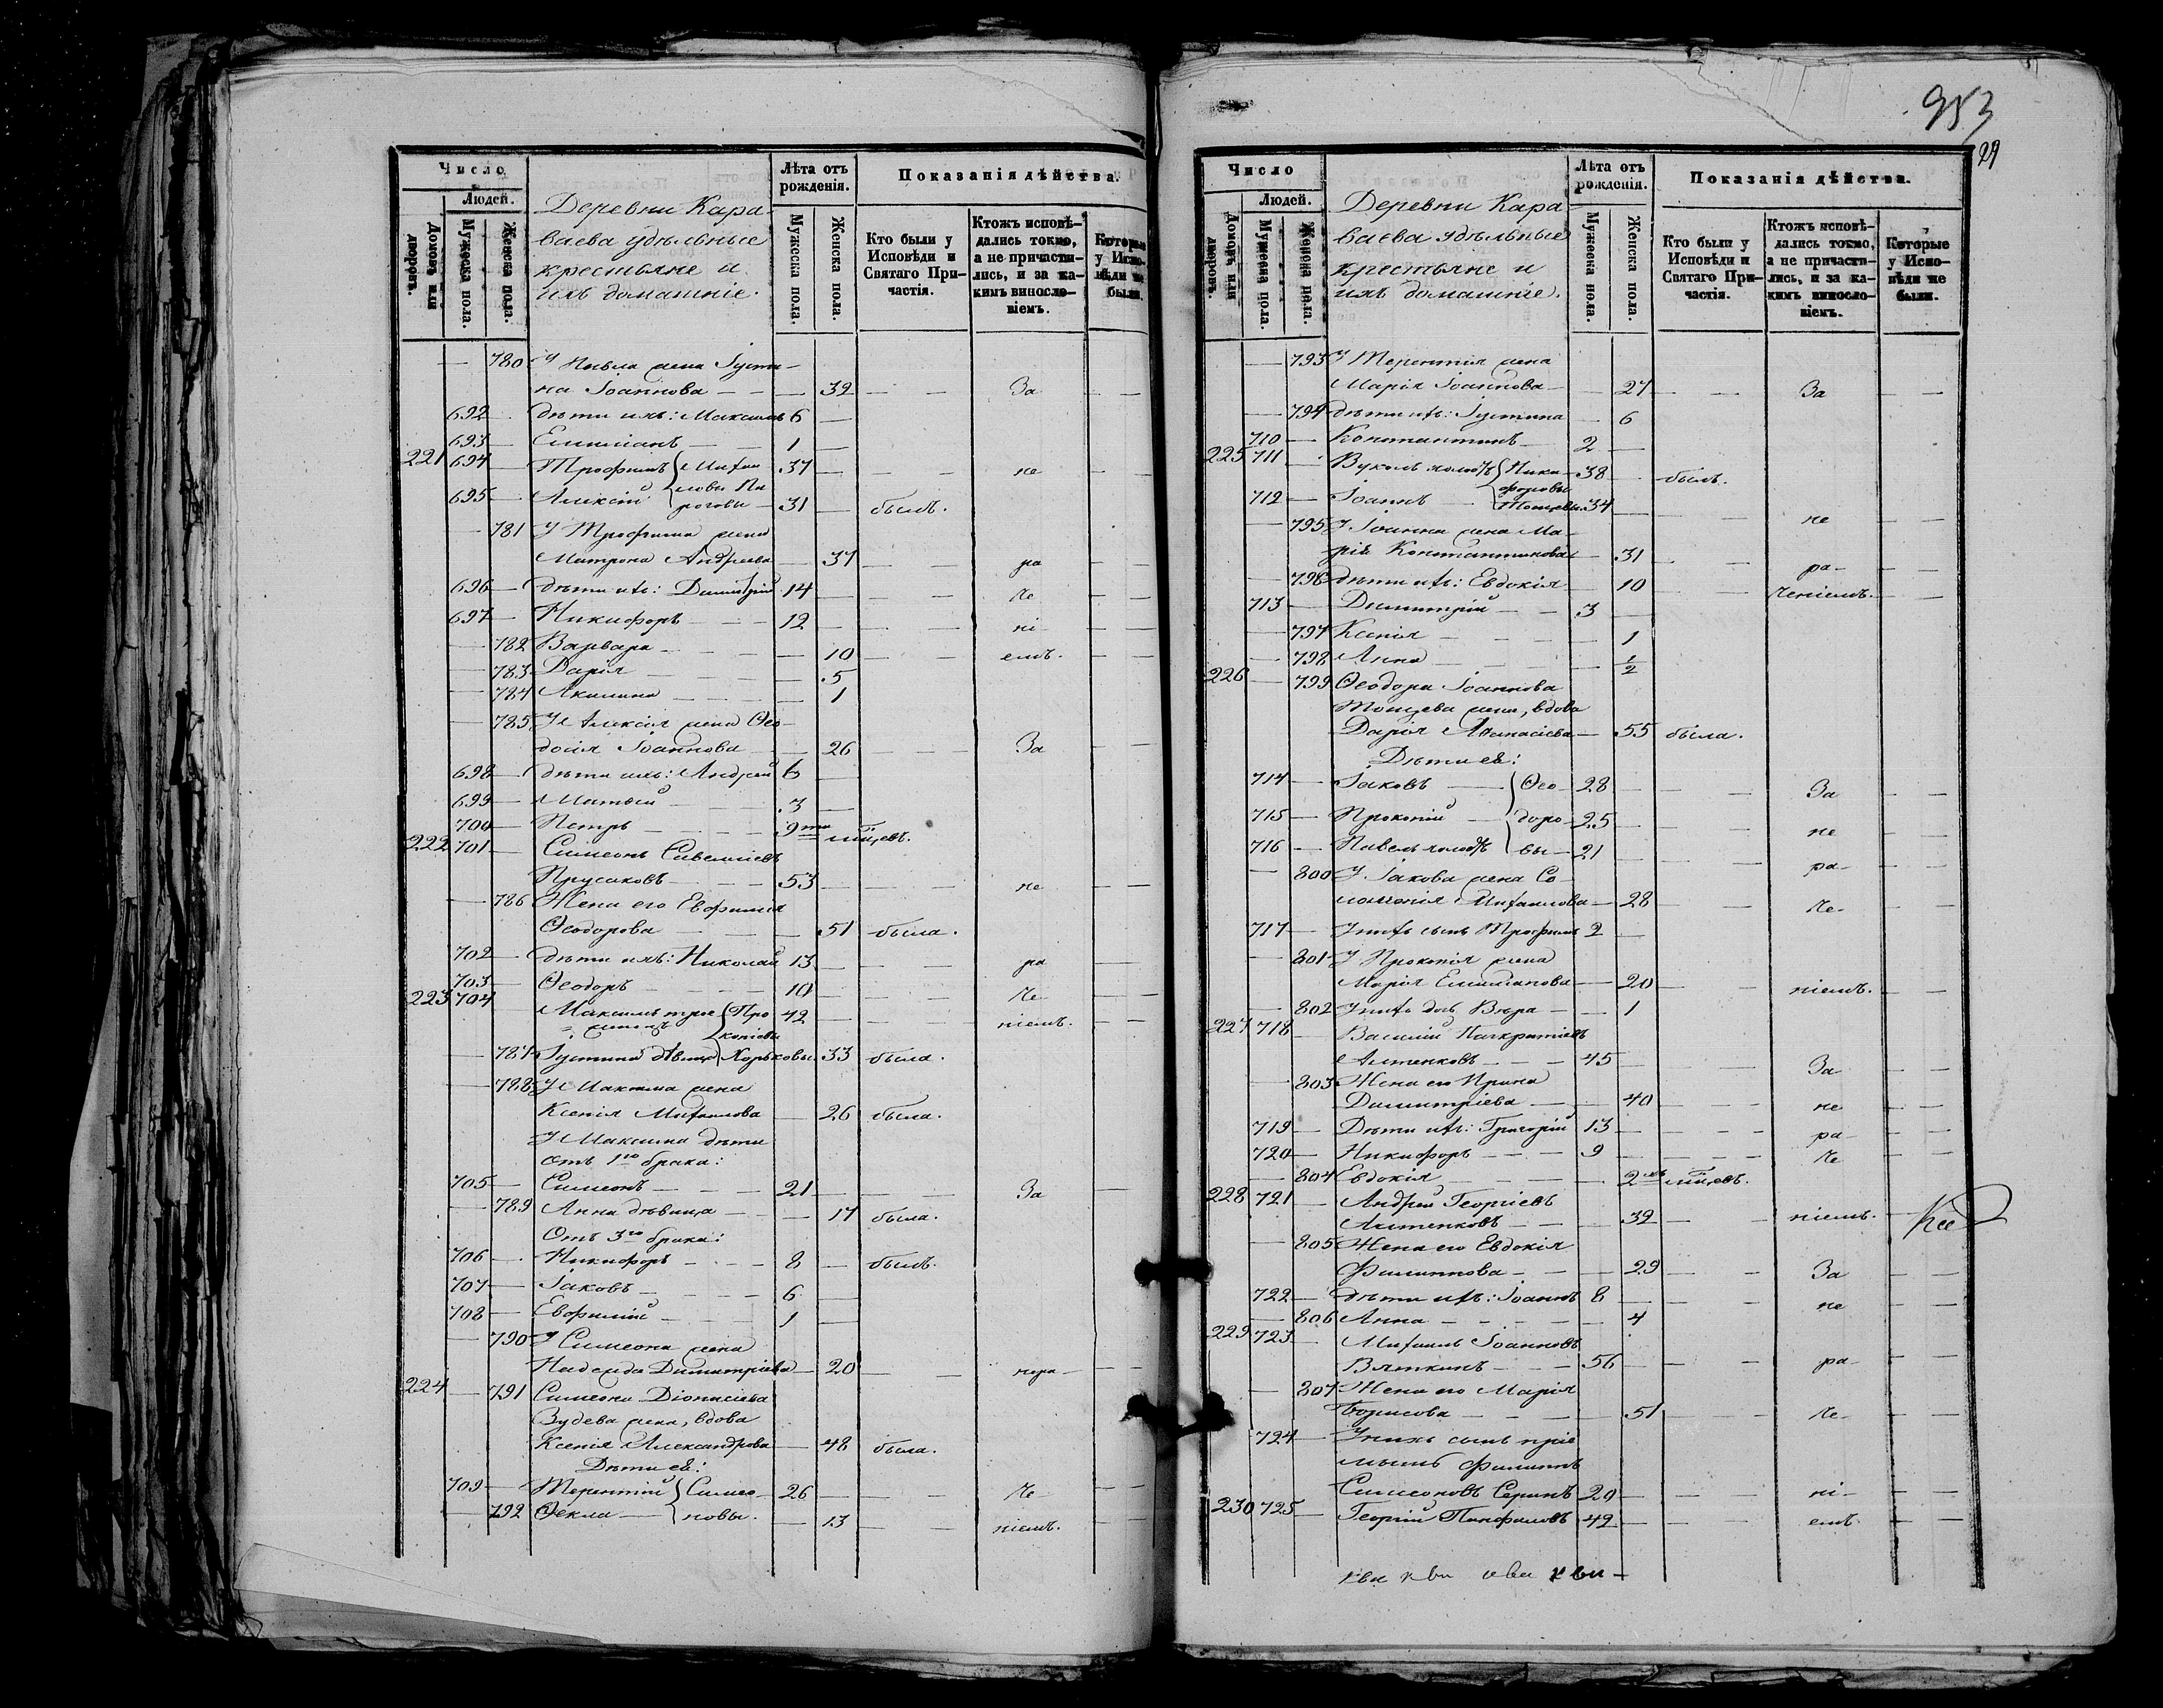 Число
Людей.
Домовъ или дворовъ.
Мужеска пола.
Женска пола.
Деревни Кара-
ваева удѣльные
крестьяне и
ихъ домашніе.
Лѣта отъ рожденія.
Мужеска пола.
Женска пола.
Показанія дѣйства.
Кто были у Исповѣди и Святаго Причастія.
Ктожъ исповѣдались токмо, а не причастились, и за какимъ винословіемъ.
Которые у Исповѣди не были.
— 780 У Павла жена Іусти-
на Іоаннова — — 32 — — За — —
692 — дѣти ихъ: Максимъ 6 —
693 — Емиліанъ — — 1 —
221 694 — Трофимъ Михаи 37 — — — не — —
695 — Алексій ловы Пи
роговы — 31 — былъ.
— 781 У Трофима жена
Матрона Андреева — 37 — — ра — —
696 — дѣти ихъ: Димитрій 14 — — — че — —
697 — Никифоръ — — — 12 — — — ні — — —
— 782 Варвара — — — — 10 — — емъ. — —
— 783 Дарія — — — — 5
— 784 Акилина — — — 1
— 785 У Алексія жена Ѳео-
досія Іоаннова — — 26 — — За — —
698 — дѣти ихъ: Андрей 6 —
699 — Матвій — — 3 —
700 — Петръ — — — 9ти мѣсяцевъ.
222 701 — Симеонъ Савельіевъ
Прусаковъ — — — 53 — — — не — —
— 786 Жена его Евфимія
Ѳеодорова — — — 51 была.
702 — дѣти ихъ: Николай 13 — — — ра — —
703 — Ѳеодоръ — — — 10 — — — че — —
223 704 Максимъ трое Про 42 — — — ніемъ. — —
женецъ копіевы
— 787 Іустина дѣвица Хорьковы. 33 была.
— 788 У Максима жена
Ксенія Михаилова — 26 была.
У Максима дѣти
отъ 1го брака:
705 — Симеонъ — — — 21 — — — За —
— 789 Анна дѣвица — — 17 была.
Отъ 3го брака:
706 — Никифоръ — — — 8 — былъ.
707 — Іаковъ — — — 6 —
708 — Евфимій — — — 1 —
— 790 У Симеона жена
Надежда Димитріева — 20 — — нера- — —
224 — 791 Симеона Діонисіева
Зудева жена, вдова
Ксенія Александрова — 48 была.
Дѣти ея:
709 — Терентій Симео- 26 — — — че — —
— 792 Ѳекла — новы. — 13 — — ніемъ. — —
953
29
Число
Людей.
Домовъ или дворовъ.
Мужеска пола.
Женска пола.
Деревни Кара-
ваева удѣльные
крестьяне и
ихъ домашніе.
Лѣта отъ рожденія.
Мужеска пола.
Женска пола.
Показанія дѣйства.
Кто были у Исповѣди и Святаго Причастія.
Ктожъ исповѣдались токмо, а не причастились, и за какимъ винословіемъ.
Которые у Исповѣди не были.
— 793 У Терентія жена
Марія Іоаннова — — 27 — — За — —
— 794 дѣти ихъ: Іустина — 6
710 — Константинъ — 2 —
225 711 — Вуколъ холостъ Ника- 38 — былъ.
форовы
712 — Іоаннъ — 34 — не — —
— 795 У Іоанна жена Ма-
рія Константинова — 31 — — ра- — —
— 796 дѣти ихъ: Евдокія — 10 — — ченіемъ. — —
713 — Димитрій — — 3 —
— 797 Ксенія — — — — 1
— 798 Анна — — — — 1/2
226 — 799 Ѳеодора Іоаннова
жена, вдова
Дарія Аѳанасіева — 55 была.
Дѣти ея:
714 — Іаковъ — Ѳео- 28 — — — За — —
715 — Прокопій — доро- 25 — — — не — —
716 — Павелъ холостъ вы — 21 — — — ра- — —
— 800 У Іакова жена Со-
ломонія Михаилова — 28 — — че- — —
717 — У нихъ сынъ Трофимъ 2 —
— 801 У Прокопія жена
Марія Емиліанова — 20 — — ніемъ. — —
— 802 У нихъ дочь Вѣра — — 1
227 718 — Василій Панкратіевъ
Алтенковъ — — — 45 — — — За — —
— 803 Жена его Ирина
Димитріева — — — 40 — — не — —
719 — Дѣти ихъ: Григорій 13 — — — ра- — —
720 — Никифоръ — — — 9 — — — че — —
— 804 Евдокія — — — — 2хъ мѣсяцевъ.
228 721 — Андрей Георгіевъ
Алтенковъ — — — 32 — — ніемъ. —
— 805 Жена его Евдокія
Филиппова — — — 29 — — За — —
722 — дѣти ихъ: Іоаннъ 8 — — — не — —
— 806 Анна — — — — 4
229 723 — Михаилъ Іоанновъ
Вяткинъ — — 56 — — — ра- — —
— 807 Жена его Марія
Борисова — — — 51 — — че- — —
724 — У нихъ сынъ пріе
мышъ Филиппъ
Симеоновъ 20 — — — ні- — —
230 725 — Георгій Панфиловъ 42 — — — емъ. — —